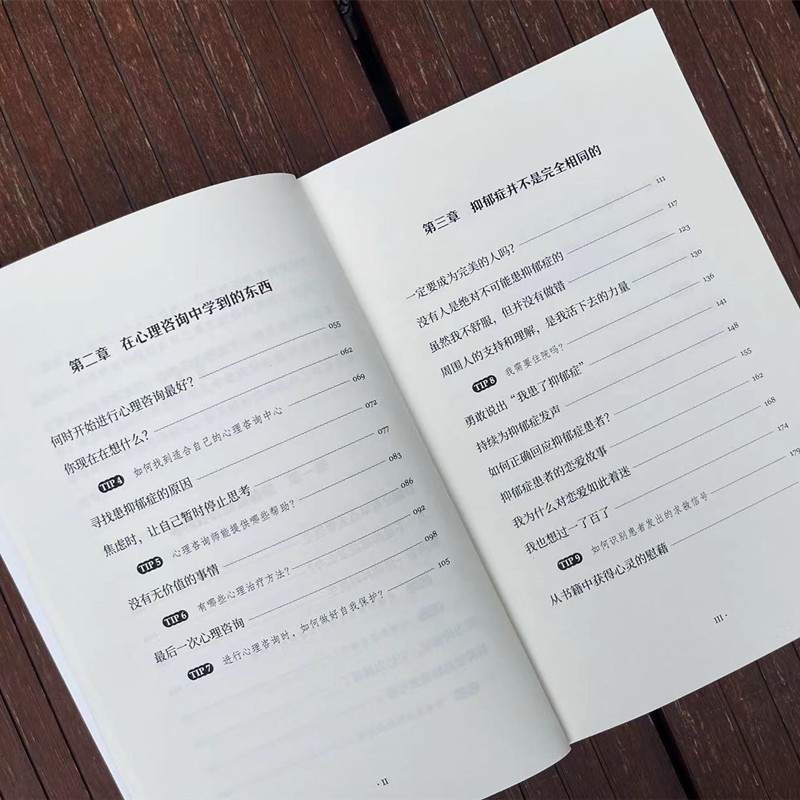 第二章 在心理咨询中学到的东西
何时开始进行心理咨询最好？ 055
你现在在想什么？ 062
TIP 4 如何找到适合自己的心理咨询中心 069
寻找患抑郁症的原因 072
焦虑时，让自己暂时停止思考 077
TIP 5 心理咨询师能提供哪些帮助？ 083
没有无价值的事情 086
TIP 6 有哪些心理治疗方法？ 092
最后一次心理咨询 098
TIP 7 进行心理咨询时，如何做好自我保护？ 105
· II
第三章 抑郁症并不是完全相同的
一定要成为完美的人吗？ 111
没有人是绝对不可能患抑郁症的 117
虽然我不舒服，但并没有做错 123
周围人的支持和理解，是我活下去的力量 130
TIP 8 我需要住院吗？ 136
勇敢说出“我患了抑郁症” 141
持续为抑郁症发声 148
如何正确回应抑郁症患者？ 155
抑郁症患者的恋爱故事 162
我为什么对恋爱如此着迷 168
我也想过一了百了 174
TIP 9 如何识别患者发出的求救信号 179
从书籍中获得心灵的慰藉
III ·